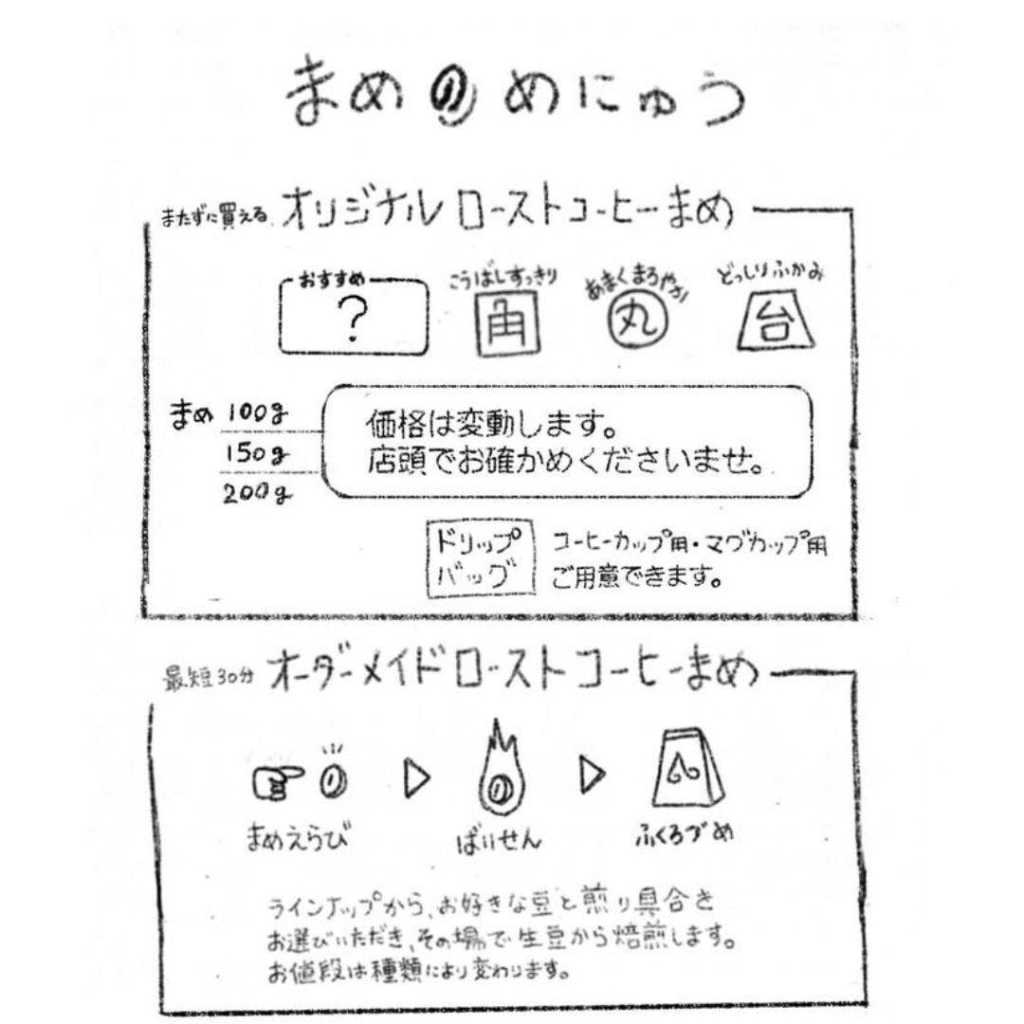 まめのめにゅう
またずに買える オリジナルローストコーヒーまめ
おすすめ
?
こうばしすっきり
角
あまくまろやか
丸
どっしりふかみ
台
まめ 100g
150g
200g
価格は変動します。
店頭でお確かめくださいませ。
ドリップ
バッグ
コーヒーカップ用・マグカップ用
ご用意できます。
最短30分 オーダーメイドローストコーヒーまめ
まめえらび
ばいせん
ふくろづめ
ラインナップから、お好きな豆と煎り具合を
お選びいただき、その場で生豆から焙煎します。
お値段は種類により変わります。